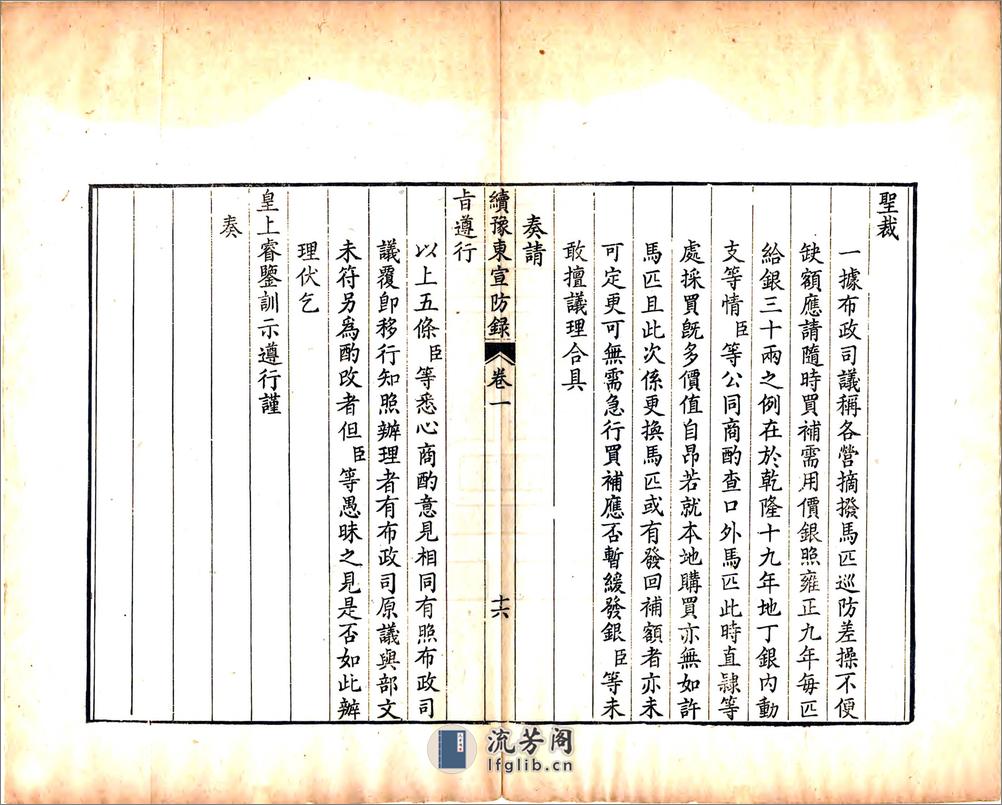 聖裁
一據布政司議稱各營摘撥馬匹巡防差操不便
缺額應請隨時買補需用價銀照雍正九年每匹
給銀三十兩之例在於乾隆十九年地丁銀內動
支等情臣等公同商酌查口外馬匹此時直隸等
處採買既多價值自昂若就本地購買亦無如許
馬匹且此次係更換馬匹或有發回補額者亦未
可定更可無需急行買補應否暫緩發銀臣等未
敢擅議理合具
奏請
續豫東宣防録 卷一 十六
旨遵行
以上五條臣等悉心商酌意見相同有照布政司
議覆卽移行知照辦理者有布政司原議與部文
未符另爲酌改者但臣等愚昧之見是否如此辦
理伏乞
皇上睿鑒訓示遵行謹
奏
流芳阁
lfglib.cn